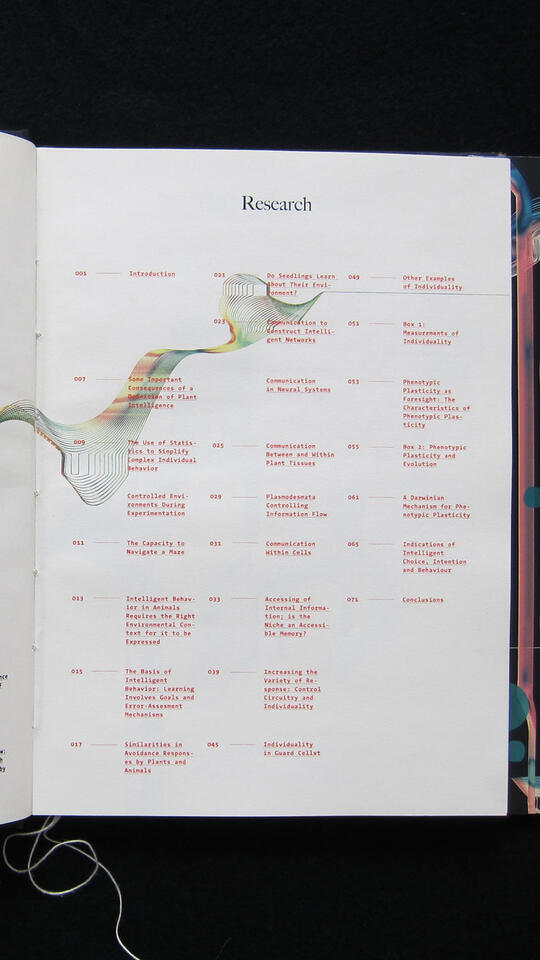 Research
001
Introduction
007
Some Important
Consequences of a
Definition of Plant
Intelligence
009
The Use of Statis-
tics to Simplify
Complex Individual
Behavior
Controlled Envi-
ronments During
Experimentation
011
The Capacity to
Navigate a Maze
013
Intelligent Behav-
ior in Animals
Requires the Right
Environmental Con-
text for it to be
Expressed
015
The Basis of
Intelligent
Behavior: Learning
Involves Goals and
Error-Assesment
Mechanisms
017
Similarities in
Avoidance Respons-
es by Plants and
Animals
021
Do Seedlings Learn
About Their Envi-
ronment?
023
Communication to
Construct Intelli-
gent Networks
Communication
in Neural Systems
025
Communication
Between and Within
Plant Tissues
029
Plasmodesmata
Controlling
Information Flow
031
Communication
Within Cells
033
Accessing of
Internal Informa-
tion; is the
Niche an Accessi-
ble Memory?
039
Increasing the
Variety of Re-
sponse: Control
Circuitry and
Individuality
045
Individuality
in Guard Cellst
049
Other Examples
of Individuality
051
Box 1:
Measurements of
Individuality
053
Phenotypic
Plasticity as
Foresight: The
Characteristics of
Phenotypic Plas-
ticity
055
Box 2: Phenotypic
Plasticity and
Evolution
061
A Darwinian
Mechanism for Phe-
notypic Plasticity
065
Indications of
Intelligent
Choice, Intention
and Behaviour
071
Conclusions